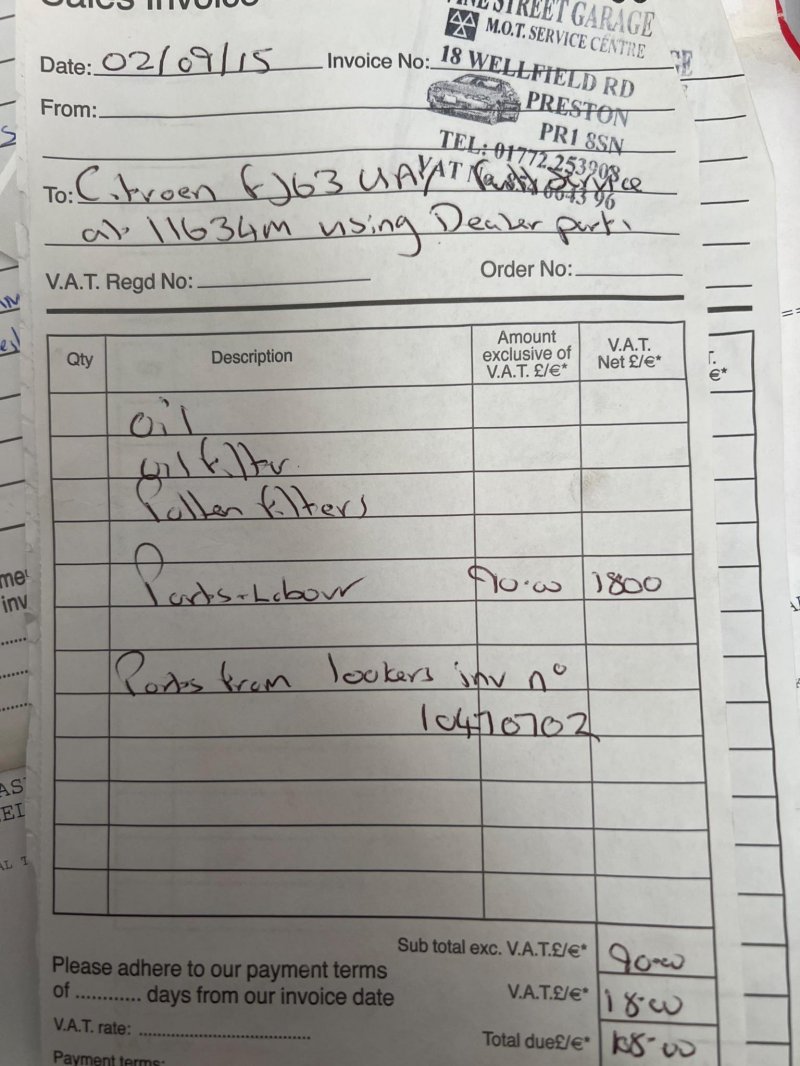 Sales Invoice
STREET GARAGE
M.O.T. SERVICE CENTRE
Date: 02/09/15 Invoice No:
18 WELLFIELD RD
PRESTON
PR1 8SN
From:
TEL: 01772 253908
VAT
To: Citroen FJ63 UAY Service
at 11634m using Dealer parts
V.A.T. Regd No: Order No:
Qty Description Amount exclusive of V.A.T. £/€* V.A.T. Net £/€*
oil
oil filter
Pollen filters
Parts + Labour 90.00 1800
Parts from lookers inv nº
10470702
Sub total exc. V.A.T.£/€* 90.00
Please adhere to our payment terms
of ............ days from our invoice date
V.A.T.£/€* 18.00
V.A.T. rate:
Total due£/€* 108.00
Payment terms: